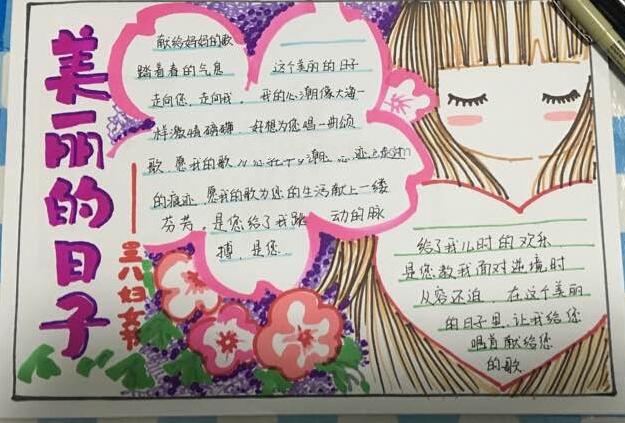 美丽的日子
三八妇女
献给妈妈的歌
踏着春的气息 这个美丽的日子
走向您,走向我。我的心潮像大海一
样激情磅礴 好想为您唱一曲颂
歌,愿我的歌
的痕迹,愿我的歌为您的生活献上一缕
芬芳,是您给了我跳动的脉
搏,是您
给了我儿时的欢乐
是您教我面对逆境时
从容不迫,在这个美丽
的日子里,让我给您
唱首献给您
的歌